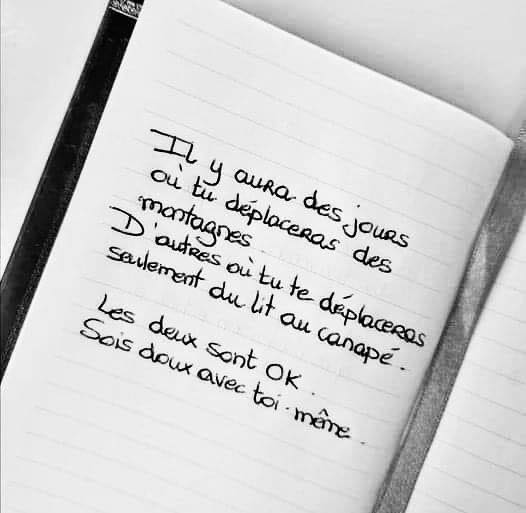 Il y aura des jours
où tu déplaceras des
montagnes.
D'autres où tu te déplaceras
seulement du lit au canapé.
Les deux sont OK.
Sois doux avec toi-même.